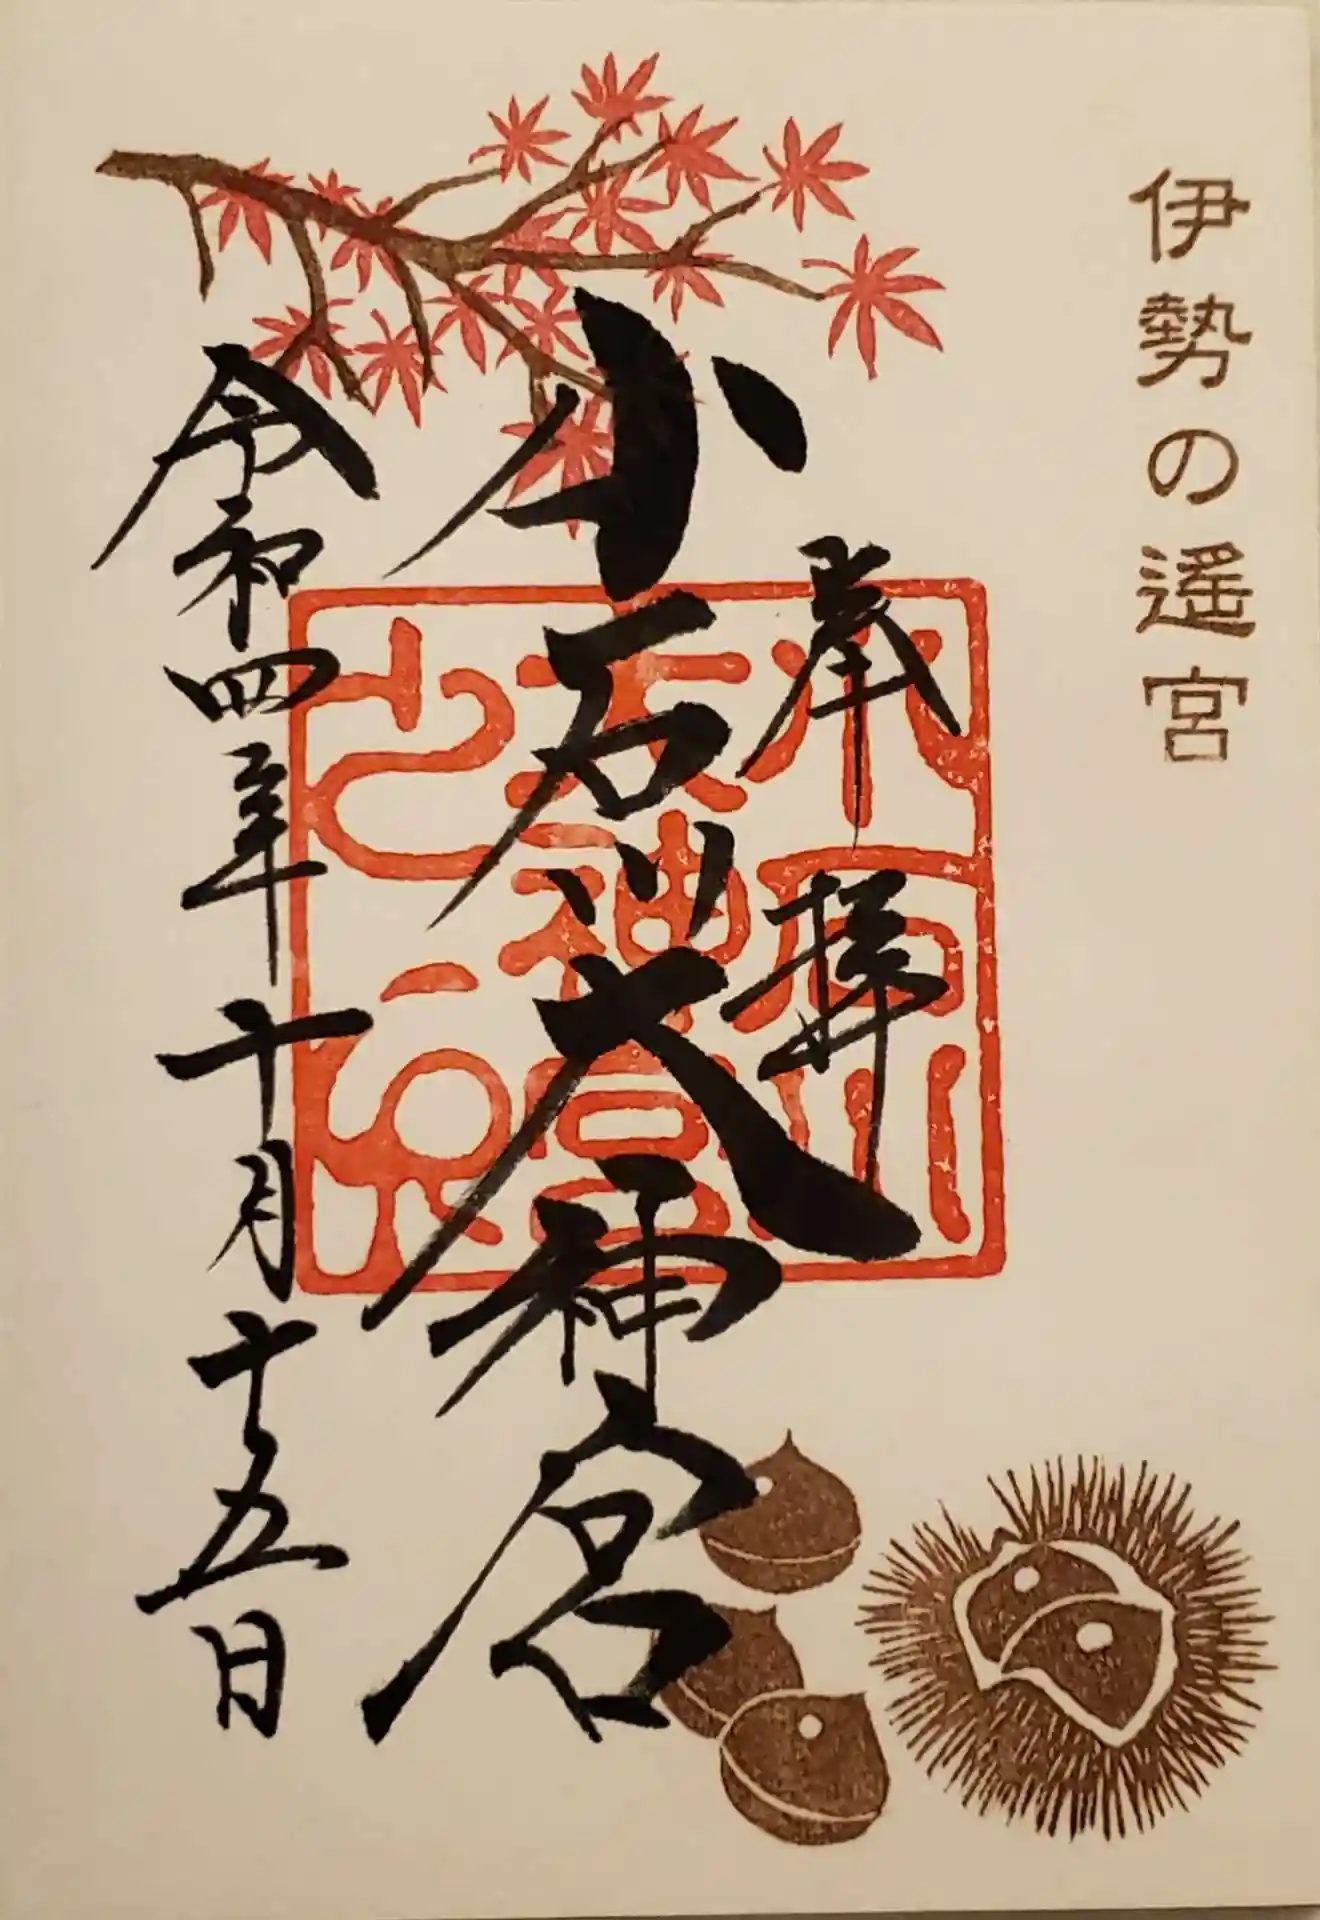 伊勢の遥宮
奉拝
小石川大神宮
令和四年十月十五日
小石川大神宮之印